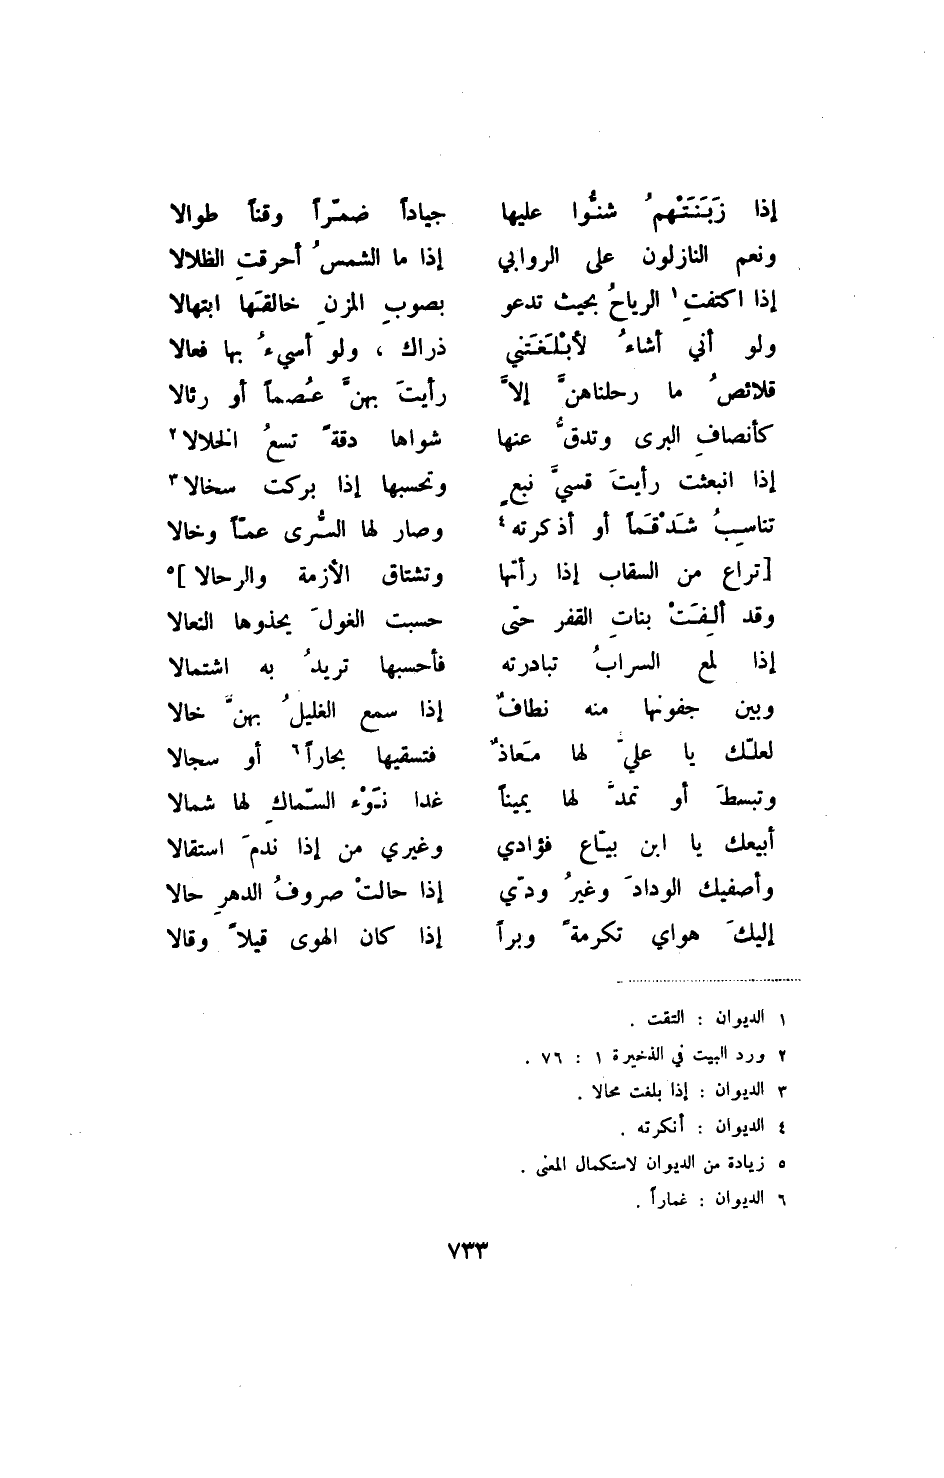 إذا زَبَنَتْهمُ شنُّوا عليها جياداً ضمّراً وقناً طوالا
ونعم النازلون على الروابي إذا ما الشمسُ أحرقتِ الظلالا
إذا اكتفتِ١ الرياحُ بحيث تدعو بصوبِ المزنِ خالقَها ابتهالا
ولو أني أشاءُ لأبْلَغَتني ذراك ، ولو أسيءُ بها فعالا
قلائصُ ما رحلناهنَّ إلاَّ رأيتَ بهنَّ عُصماً أو رئالا
كأنصافِ البرى وتدقُّ عنها شواها دقةً تسعُ الخلالا٢
إذا انبعثت رأيتَ قسيَّ نبعٍ وتحسبها إذا بركت سخالا٣
تناسبُ شَدْقَماً أو أذكرته٤ وصار لها السُّرى عمّاً وخالا
[تراع من السقاب إذا رأتها وتشتاق الأزمة والرحالا]٥
وقد ألِفَتْ بناتِ القفر حتّى حسبت الغولَ يحذوها النعالا
إذا لمع السرابُ تبادرته فأحسبها تريدُ به اشتمالا
وبين جفونها منه نطافٌ إذا سمع الغليلُ بهنَّ خالا
لعلّك يا عليُّ لها مَعاذٌ فتسقيها بحاراً٦ أو سجالا
وتبسطَ أو تمدَّ لها يميناً غدا نَوْء السّماكِ لها شمالا
أبيعك يا ابن بيّاع فؤادي وغيري من إذا ندمَ استقالا
وأصفيك الودادَ وغيرُ ودّي إذا حالتْ صروفُ الدهرِ حالا
إليكَ هواي تكرمةً وبراً إذا كان الهوى قيلاً وقالا
١ الديوان : التقت .
٢ ورد البيت في الذخيرة ١ : ٧٦ .
٣ الديوان : إذا بلغت محالا .
٤ الديوان : أنكرته .
٥ زيادة من الديوان لاستكمال المعنى .
٦ الديوان : غماراً .
٧٣٣